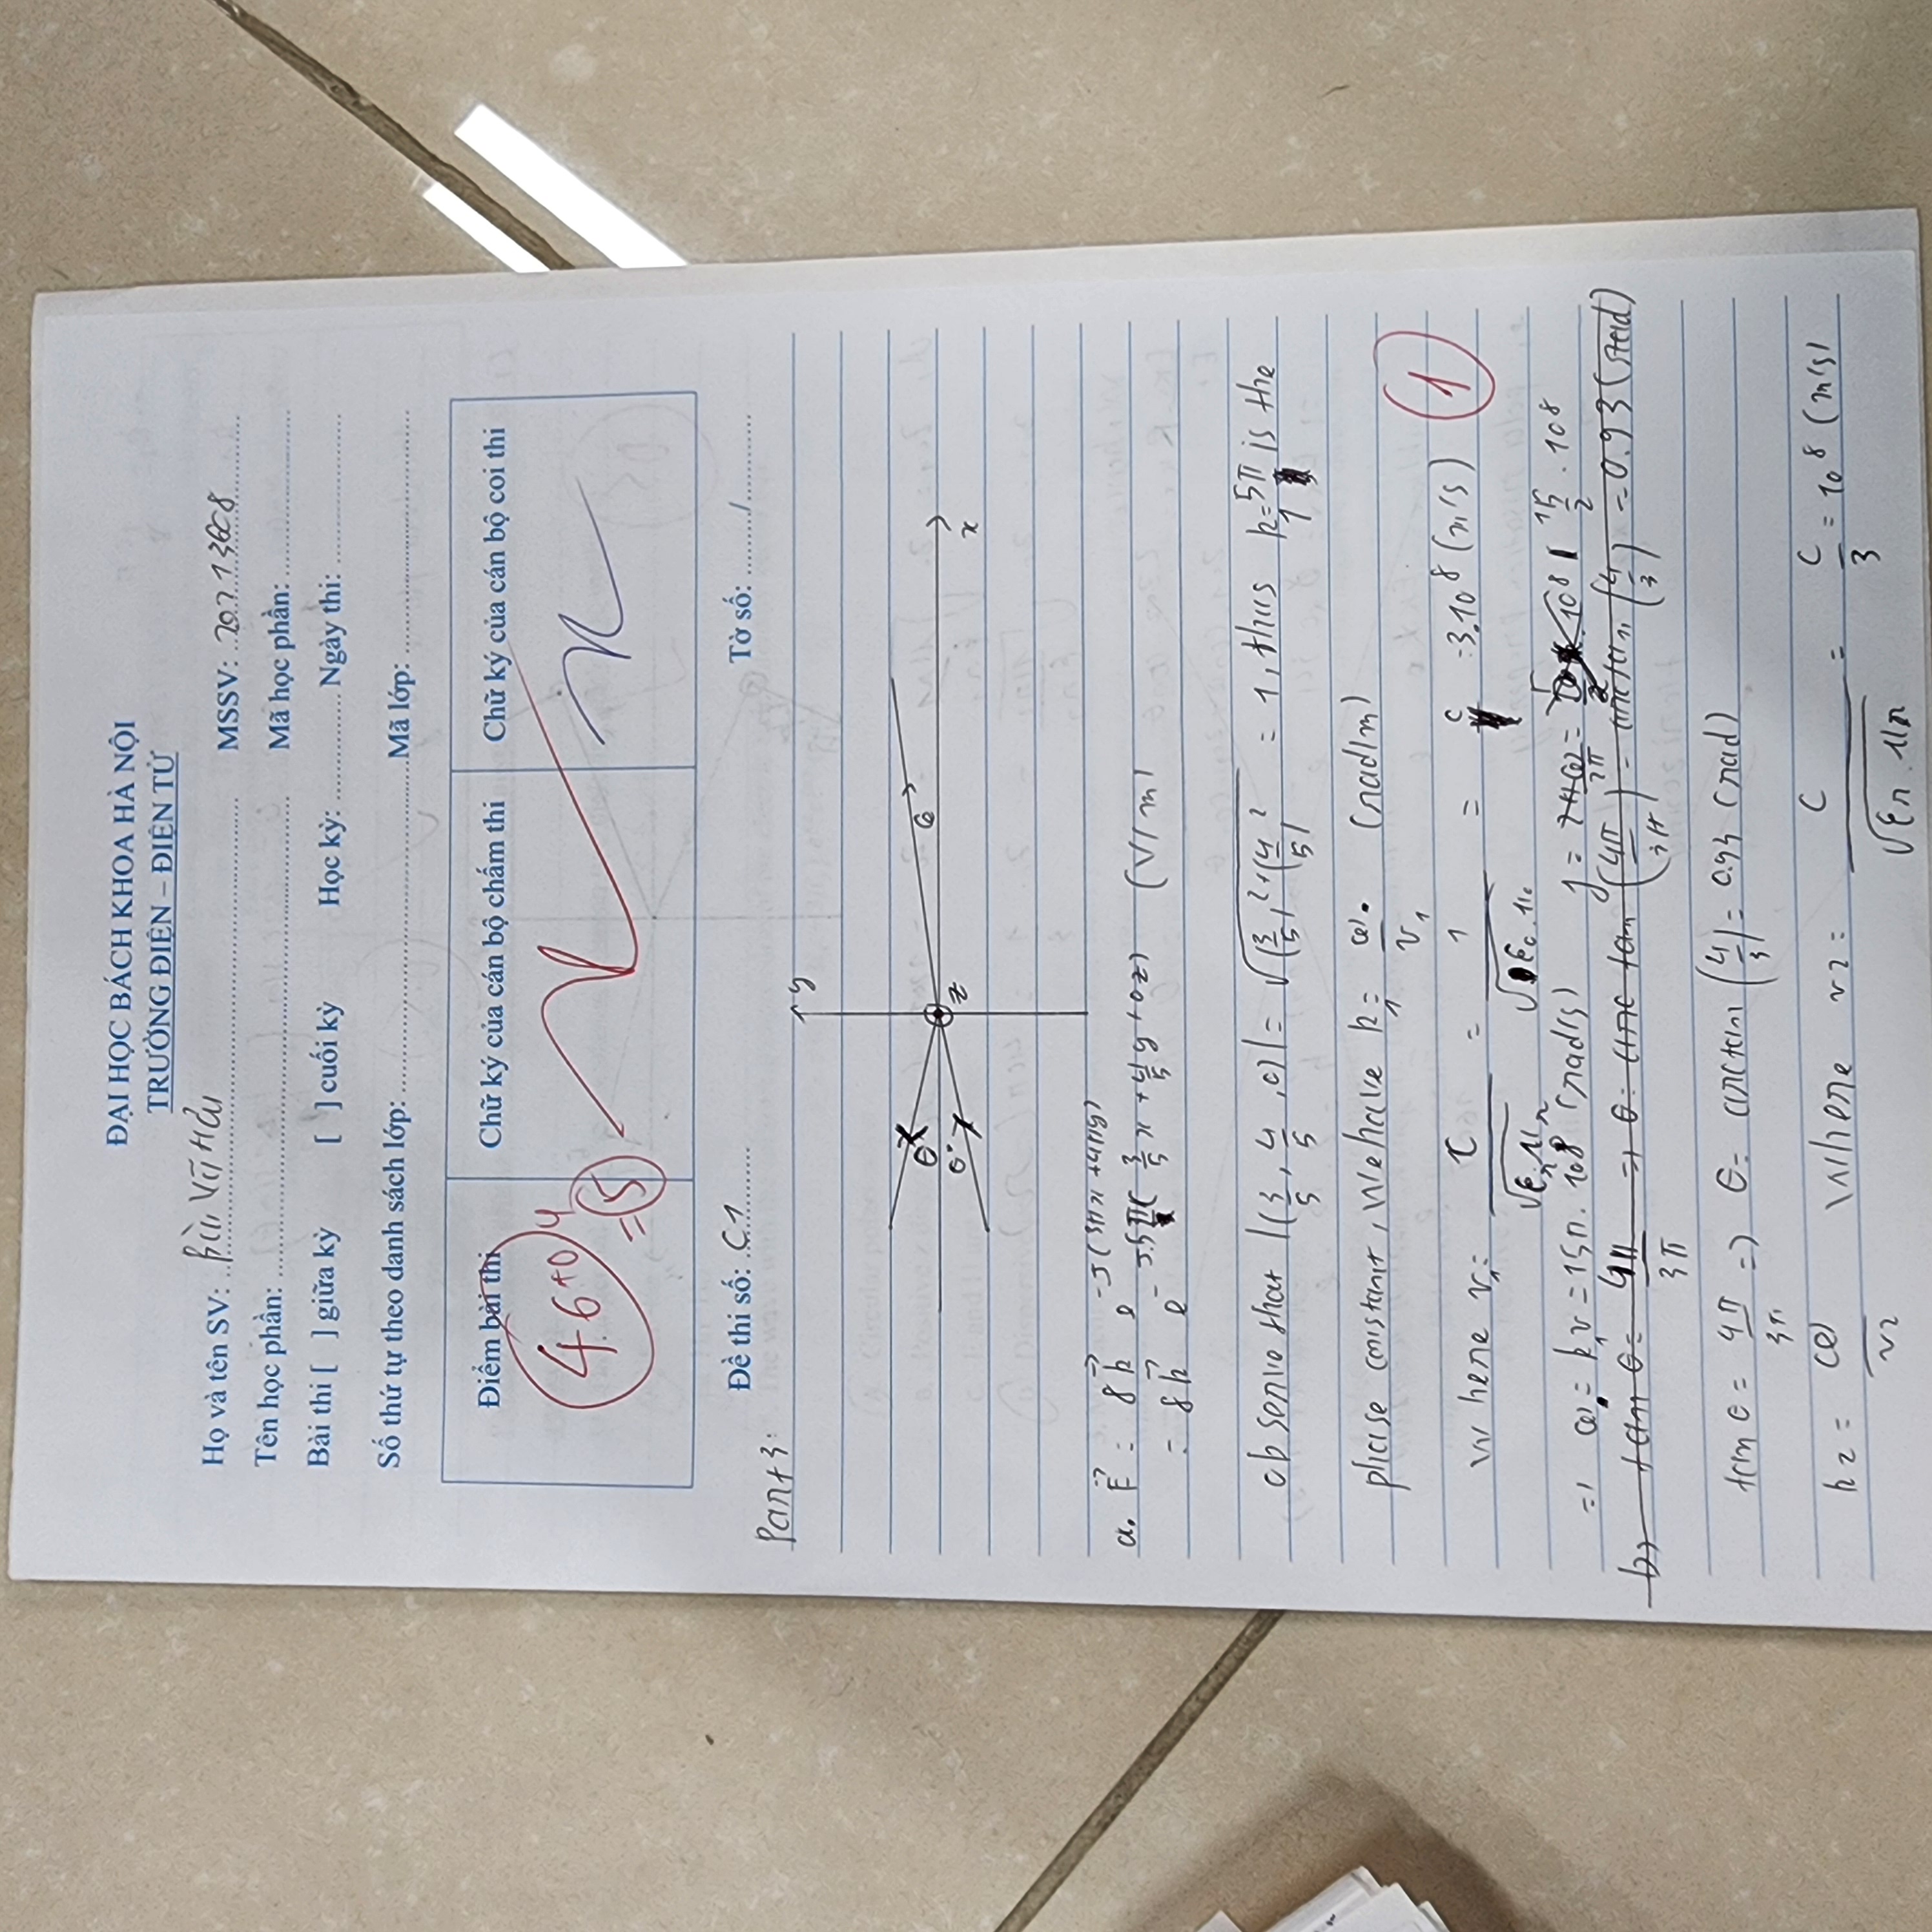 ĐẠI HỌC BÁCH KHOA HÀ NỘI
TRƯỜNG ĐIỆN – ĐIỆN TỬ
Họ và tên SV: Bùi Vĩ MSSV: 20213608
Tên học phần: Mã học phần:
Bài thi [ ] giữa kỳ [ ] cuối kỳ Học kỳ: Ngày thi:
Số thứ tự theo danh sách lớp: Mã lớp:
Điểm bài thi Chữ ký của cán bộ chấm thi Chữ ký của cán bộ coi thi
= 5
Đề thi số: C1 Tờ số: /
Part 3:
y
x
z
θ
θ
θ
a. E = 8k e^-J(3πx+4πy)
= 8k e^-J5π(3/5 x + 4/5 y + 0z) (V/m)
observe that |(3/5, 4/5, 0)| = √((3/5)²+(4/5)²) = 1, thus k₁=5π is the
phase constant, We have k₁= ω/v₁ (rad/m)
Where v₁= c/√(εr.μr) = 1/√(ε0.μ0) = c = 3.10^8 (m/s) 1
=) ω = k₁v = 15π.10^8 (rad/s)
tan θ = 4π/3π =) θ = arctan(4/3) = 0.93 (rad)
k2 = ω/v2 Where v2 = c/√(εr.μr) = c/3 = 10^8 (m/s)